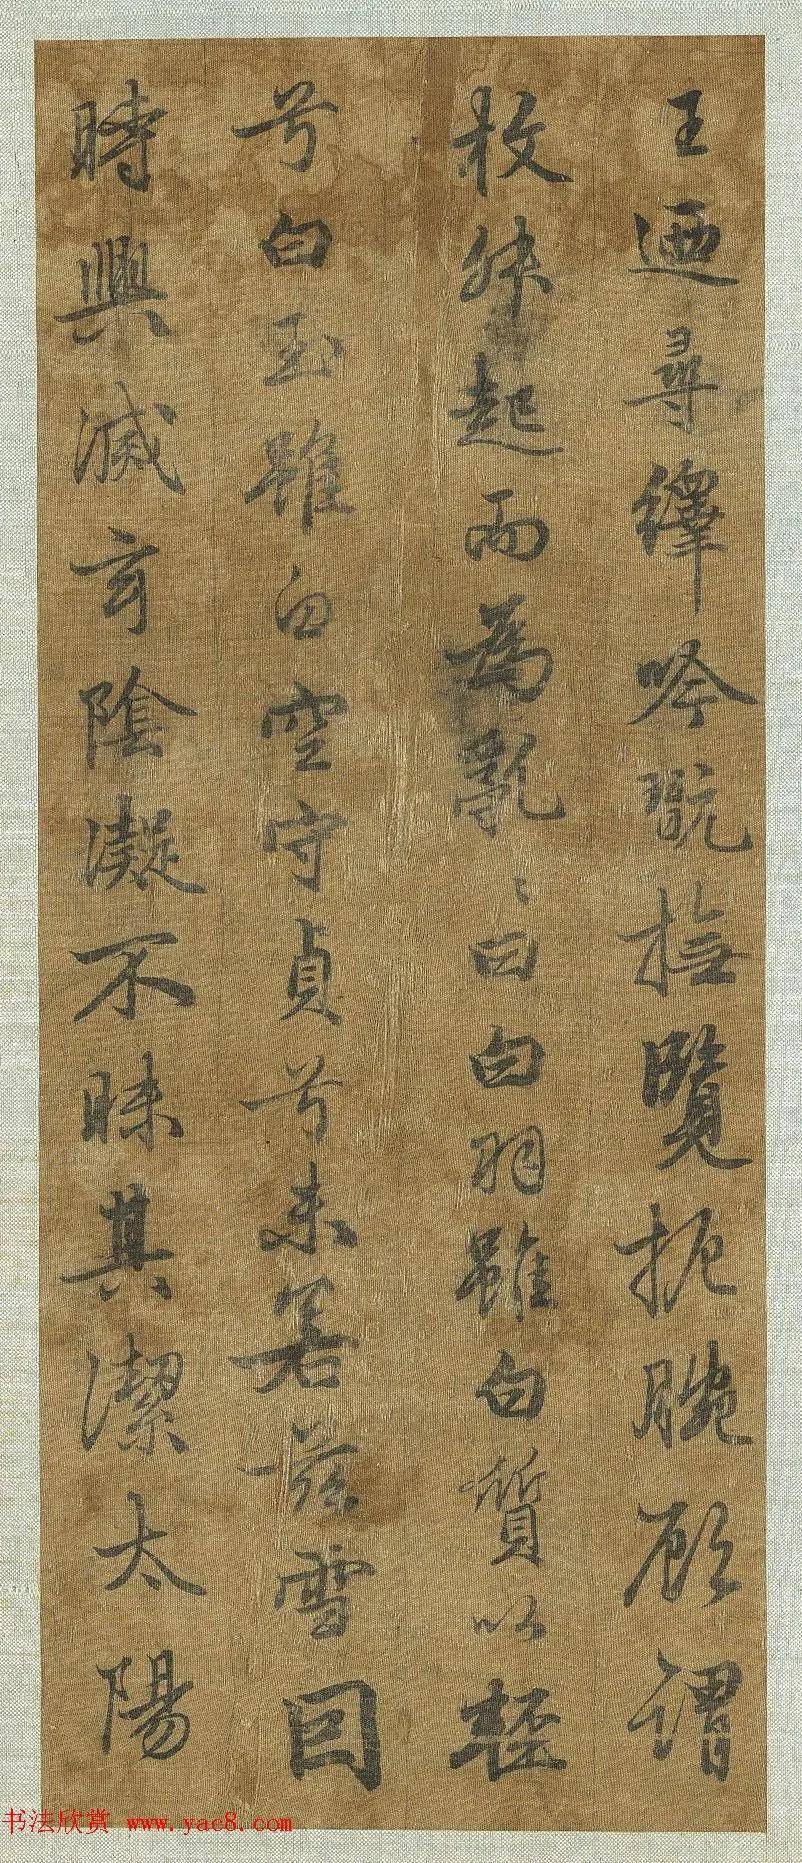 王迺尋繹吟翫撫覽扼腕顧謂
枚叔起而為亂〻曰白羽雖白質以輕
兮白玉雖白空守貞兮未若茲雪因
時興滅玄陰凝不昧其潔太陽
书法欣赏 www.yac8.com